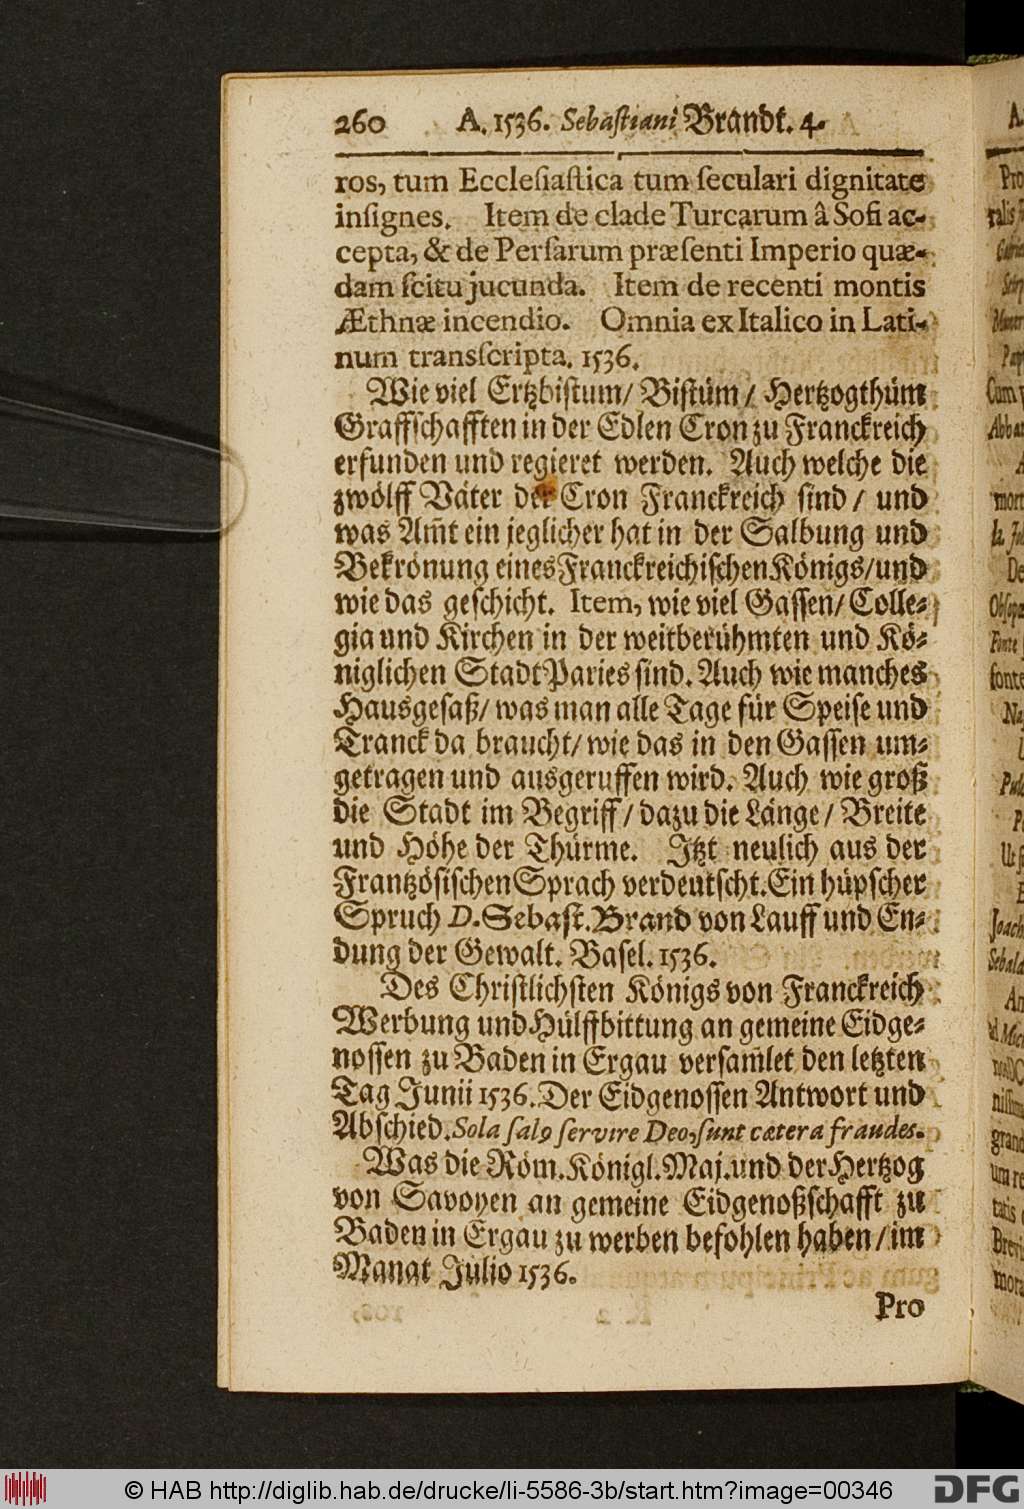 260 A. 1536. Sebaſtiani Brandt. 4.
ros, tum Eccleſiaſtica tum ſeculari dignitate
inſignes. Item de clade Turcarum â Sofi ac-
cepta, & de Perſarum præſenti Imperio quæ-
dam ſcitu jucunda. Item de recenti montis
Æthnæ incendio. Omnia ex Italico in Lati-
num transſcripta. 1536.
Wie viel Ertzbiſtum/ Biſtüm/ Hertzogthüm
Graffſchafften in der Edlen Cron zu Franckreich
erfunden und regieret werden. Auch welche die
zwölff Väter der Cron Franckreich ſind/ und
was Am̃t ein jeglicher hat in der Salbung und
Bekrönung eines Franckreichiſchen Königs/ und
wie das geſchicht. Item, wie viel Gaſſen/ Colle-
gia und Kirchen in der weitberühmten und Kö-
niglichen Stadt Paries ſind. Auch wie manches
Hausgeſaß/ was man alle Tage für Speiſe und
Tranck da braucht/ wie das in den Gaſſen um-
getragen und ausgeruffen wird. Auch wie groß
die Stadt im Begriff/ dazu die Länge/ Breite
und Höhe der Thürme. Itzt neulich aus der
Frantzöſiſchen Sprach verdeutſcht. Ein hüpſcher
Spruch D. Sebaſt. Brand von Lauff und En-
dung der Gewalt. Baſel. 1536.
Des Chriſtlichſten Königs von Franckreich
Werbung und Hülffbittung an gemeine Eidge-
noſſen zu Baden in Ergau verſam̃let den letzten
Tag Junii 1536. Der Eidgenoſſen Antwort und
Abſchied. Sola ſalꝰ ſervire Deo, ſunt cætera fraudes.
Was die Röm. Königl. Maj. und der Hertzog
von Savoyen an gemeine Eidgenoßſchafft zu
Baden in Ergau zu werben befohlen haben/ im
Manat Julio 1536.
Pro
© HAB http://diglib.hab.de/drucke/li-5586-3b/start.htm?image=00346
DFG